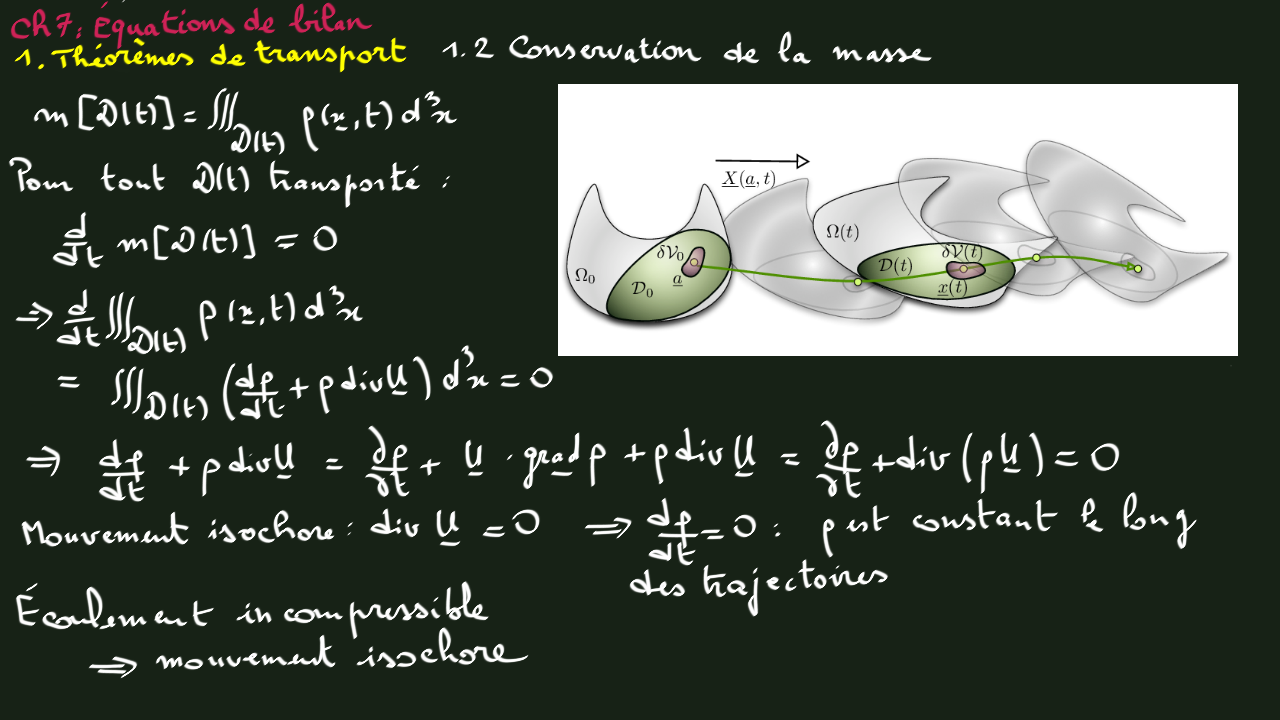 Ch 7: Équations de bilan
1. Théorèmes de transport 1.2 Conservation de la masse
m[𝒟(t)] = ∭_𝒟(t) ρ(x̲,t) d³x
Pour tout 𝒟(t) transporté :
d/dt m[𝒟(t)] = 0
⇒ d/dt ∭_𝒟(t) ρ(x̲,t) d³x
= ∭_𝒟(t) (dρ/dt + ρ div U̲) d³x = 0
⇒ dρ/dt + ρ div U̲ = ∂ρ/∂t + U̲ · grad ρ + ρ div U̲ = ∂ρ/∂t + div (ρ U̲) = 0
Mouvement isochore : div U̲ = 0 ⇒ dρ/dt = 0 : ρ est constant le long
des trajectoires
Écoulement incompressible
⇒ mouvement isochore
X̲(a̲, t)
Ω₀
δ𝒱₀
𝒟₀
a̲
Ω(t)
𝒟(t)
δ𝒱(t)
x̲(t)